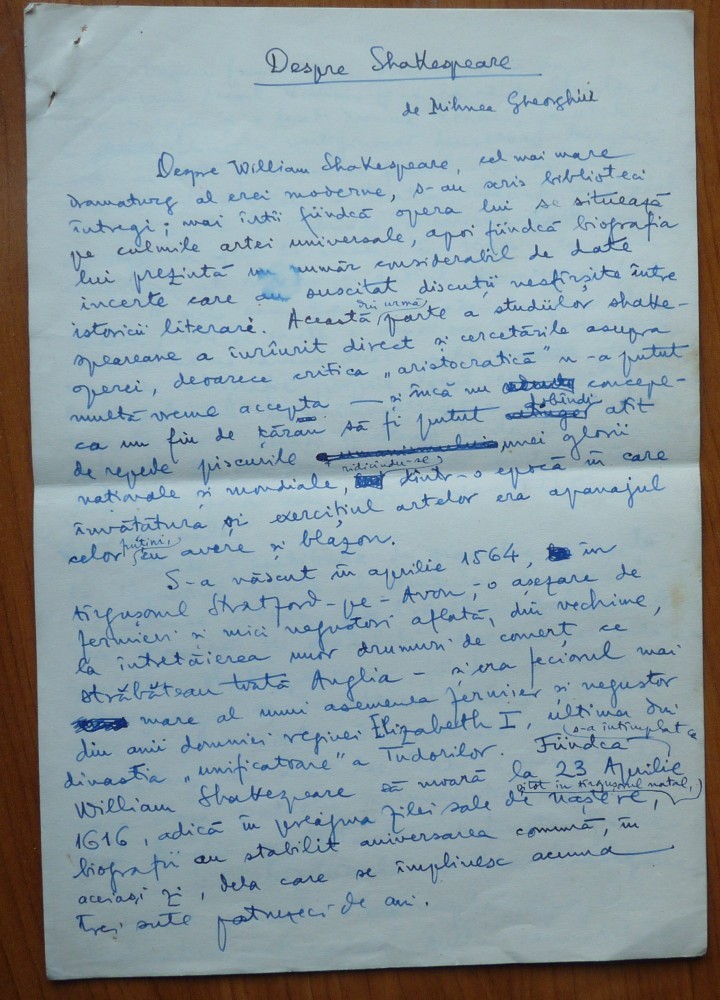 Despre Shakespeare
de Mihnea Gheorghiu
Despre William Shakespeare, cel mai mare
dramaturg al erei moderne, s-au scris biblioteci
întregi; mai întîi fiindcă opera lui se situează
pe culmile artei universale, apoi fiindcă biografia
lui prezintă un număr considerabil de date
incerte care au suscitat discuții nesfîrșite între
istoricii literari. Această din urmă parte a studiilor shake-
speareane a înrîurit direct și cercetările asupra
operei, deoarece critica „aristocratică" n-a putut
multă vreme accepta — și încă nu concepe —
ca un fiu de țăran să fi putut dobîndi atît
de repede piscurile unei glorii
naționale și mondiale, ridicîndu-se, dintr-o epocă în care
învățătura și exercițiul artelor era apanajul
celor puțini, cu avere și blazon.
S-a născut în aprilie 1564, în
tîrgușorul Stratford-pe-Avon, o așezare de
fermieri și mici negustori aflată, din vechime,
la întretăierea unor drumuri de comerț ce
străbăteau toată Anglia – și era feciorul mai
mare al unui asemenea fermier și negustor
din anii domniei reginei Elizabeth I, ultima din
dinastia „unificatoare" a Tudorilor. Fiindcă s-a întîmplat ca
William Shakespeare să moară la 23 Aprilie
1616, adică în preajma zilei sale de naștere, tot în tîrgușorul natal,
biografii au stabilit aniversarea comună, în
aceiași zi, dela care se împlinesc acuma
trei sute patruzeci de ani.